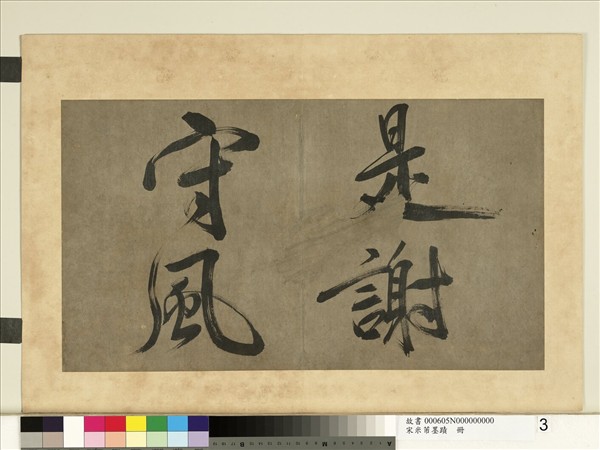 是謝
守風
故書 000605N000000000
宋米芾墨蹟 冊
3